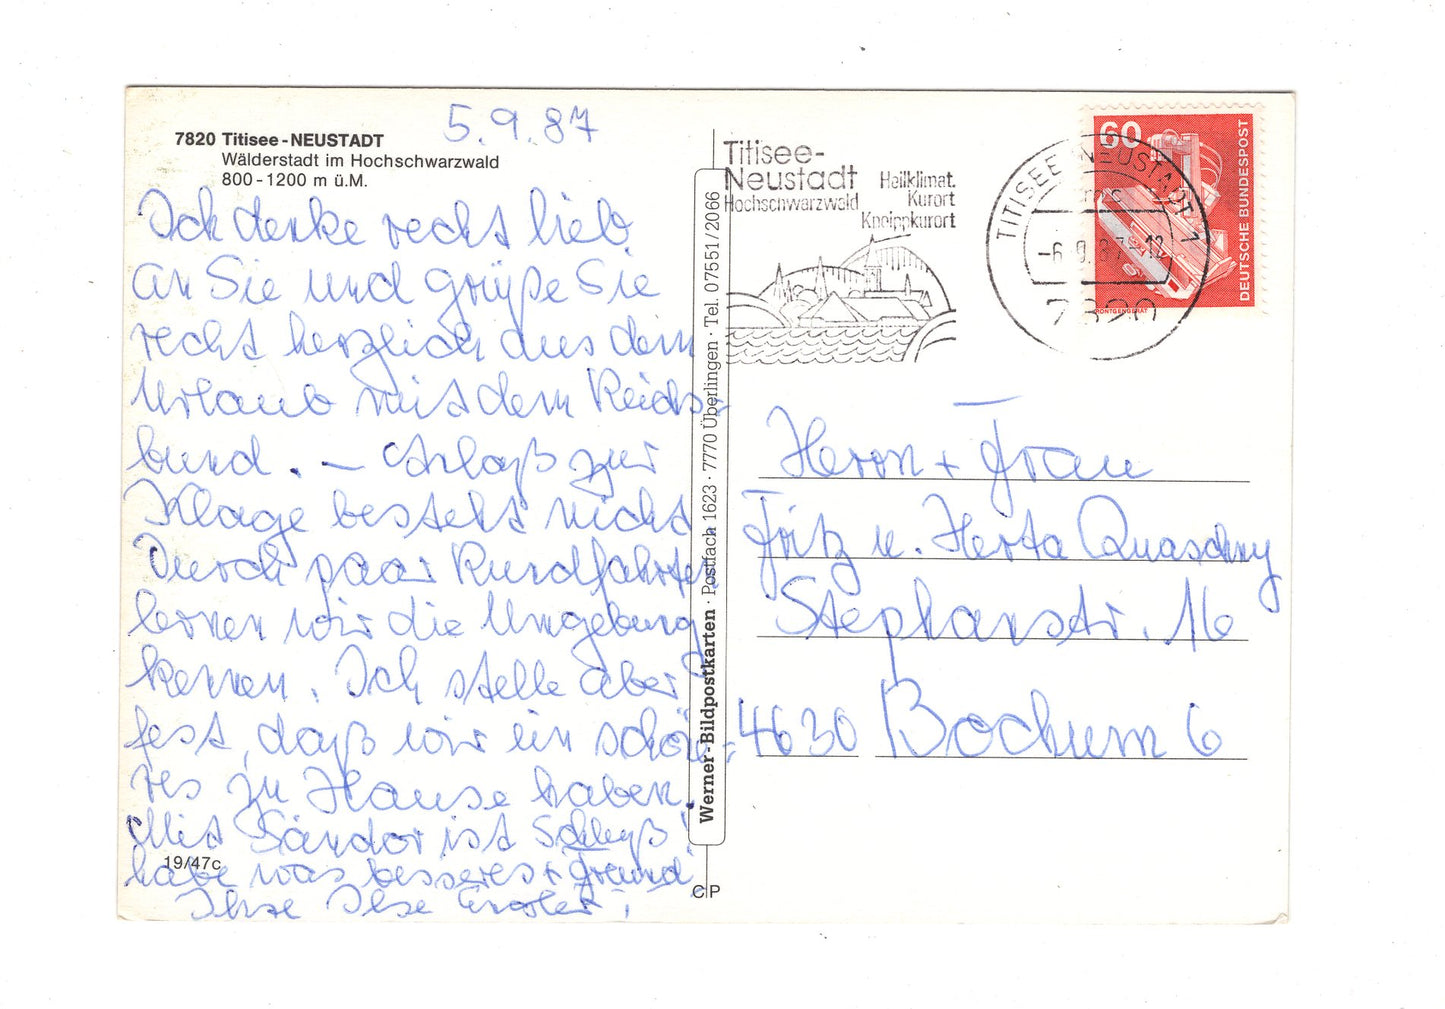 5.9.87
7820 Titisee-NEUSTADT
Wälderstadt im Hochschwarzwald
800-1200 m ü.M.
Ich denke recht lieb
an Sie und grüße Sie
recht herzlich aus dem
Urlaub mit dem Reichs-
bund. – Anlaß zur
Klage besteht nicht
Durch paar Rundfahrten
lernen wir die Umgebung
kennen. Ich stelle aber
fest, daß wir ein schö-
nes zu Hause haben.
Mit Sándor ist Schluß!
habe was besseres +
19/47c
Ihre Ilse
Werner-Bildpostkarten · Postfach 1623 · 7770 Überlingen · Tel. 07551/2066
C P
Titisee-
Neustadt
Hochschwarzwald
Heilklimat.
Kurort
Kneippkurort
TITISEE-NEUSTADT 1
-6.9.87-12
7820
60
DEUTSCHE BUNDESPOST
RÖNTGENGERÄT
Herrn + Frau
Fritz u. Herta Quaschny
Stephanstr. 16
4630 Bochum 6